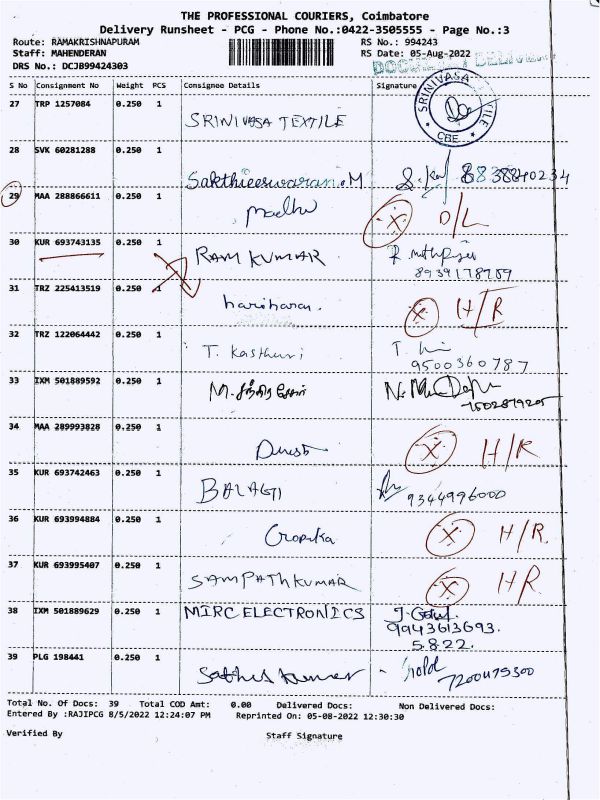 THE PROFESSIONAL COURIERS, Coimbatore
Delivery Runsheet - PCG - Phone No.:0422-3505555 - Page No.:3
Route: RAMAKRISHNAPURAM RS No.: 994243
Staff: MAHENDERAN RS Date: 05-Aug-2022
DRS No.: DCJB99424303
DOCUMENT DELIVER
S No Consignment No Weight PCS Consignee Details Signature
SRINIVASA TEXTILE
CBE
27 TRP 1257084 0.250 1
SRINIVASA TEXTILE
28 SVK 60281288 0.250 1
Sakthieeswaran.M 8838840234
29 MAA 288866611 0.250 1
Madhu X D/L
30 KUR 693743135 0.250 1
RAM KUMAR
8939178789
31 TRZ 225413519 0.250 1
hariharan. X H/R
32 TRZ 122064442 0.250 1
T. Kasthuri T.
9500360787
33 IXM 501889592 0.250 1
M.
34 MAA 289993828 0.250 1
X H/R
35 KUR 693742463 0.250 1
BALAGTI 9344996000
36 KUR 693994884 0.250 1
Gopika X H/R.
37 KUR 693995407 0.250 1
SAMPATHKUMAR X H/R
38 IXM 501889629 0.250 1
MIRC ELECTRONICS
9943613693.
5.8.22.
39 PLG 198441 0.250 1
Sathis kumar
7200475300
Total No. Of Docs: 39 Total COD Amt: 0.00 Delivered Docs: Non Delivered Docs:
Entered By :RAJIPCG 8/5/2022 12:24:07 PM Reprinted On: 05-08-2022 12:30:30
Verified By Staff Signature